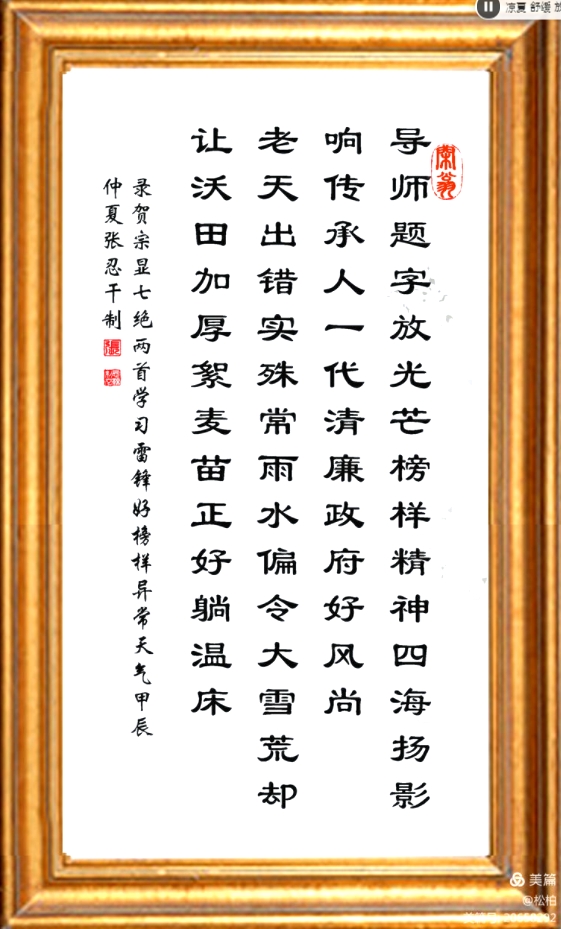 凉夏 舒缓 放
导师题字放光芒榜样精神四海扬影
响传承人一代清廉政府好风尚
老天出错实殊常雨水偏令大雪荒却
让沃田加厚絮麦苗正好躺温床
录贺宗显七绝两首学习雷锋好榜样异常天气甲辰
仲夏张忍干制
美篇
@松柏